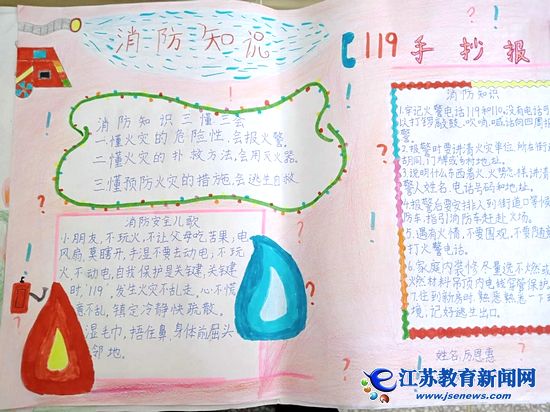 消防知识
119手抄报
消防知识三懂三会
一懂火灾的危险性,会报火警。
二懂火灾的扑救方法,会用灭火器。
三懂预防火灾的措施,会逃生自救
消防安全儿歌
小朋友,不玩火,不让父母吃苦果,电
风扇,莫瞎开,手湿不要去动电,不玩
火,不动电,自我保护是关键,关键
时,'119',发生火灾不乱走,心不慌
意不乱,镇定冷静快疏散。
湿毛巾,捂住鼻,身体前屈头
邻地。
消防知识
1.牢记火警电话119和110。没有电话可
以打锣敲鼓、吹哨,喊话向四周
警。
2.报警时要讲清火灾单位,所在街
胡同,门牌或乡村地址。
3.说明什么东西着火,火势怎样,讲清
警人姓名,电话号码和地址。
4.报警后要安排人到街道口等候
防车,指引消防车赶赴火场。
5.遇有火情,不要围观,不要随
打火警电话。
6.家庭内装修尽量选不燃或
燃材料吊顶内电线穿管保护
7.住到新房时,熟悉熟悉一下
境,记好逃生出口。
姓名:厉恩惠
江苏教育新闻网
www.jsenews.com